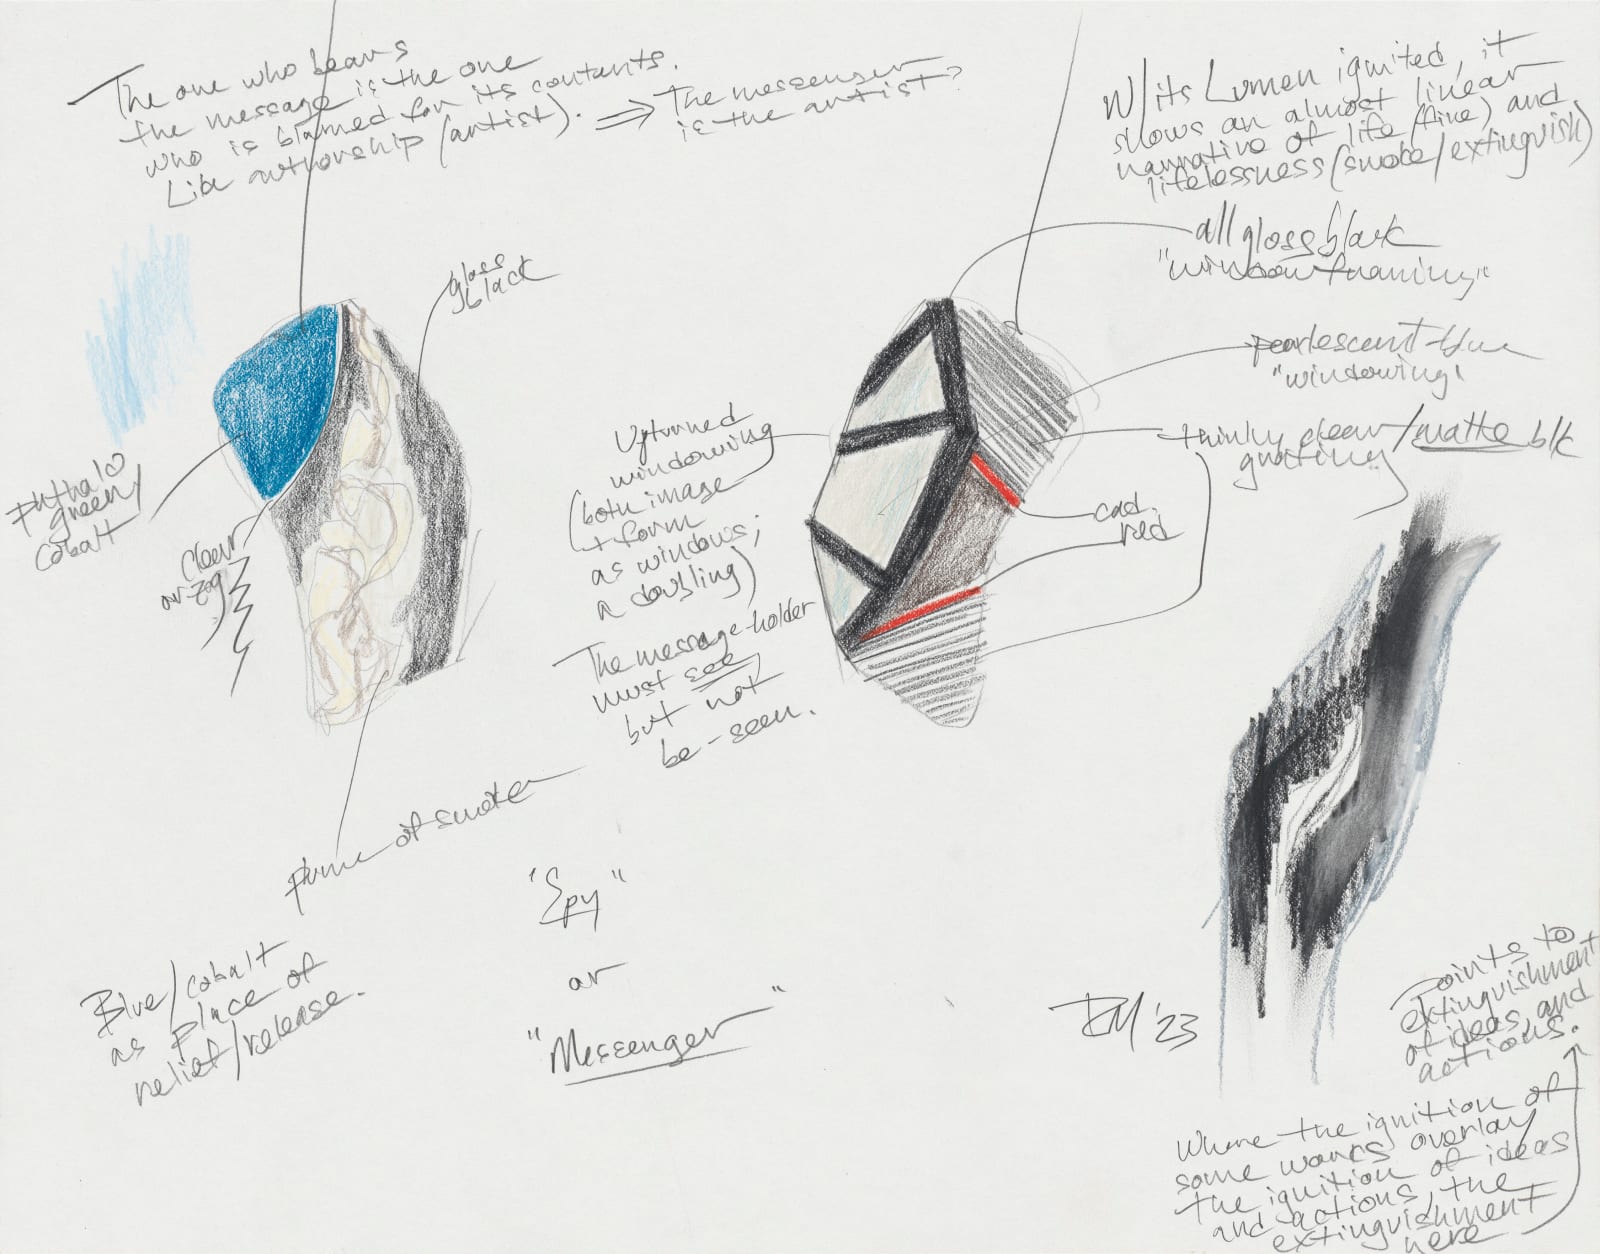 The one who bears
the message is the one
who is blamed for its contants.
Like authorship (artist). ⇒ The messenger
is the artist?
W/ its Lumen ignited, it
shows an almost linear
narrative of life (fire) and
lifelessness (smoke/extinguish)
all gloss black
"window framing"
gloss
black
pearlescent blue
"windowing"
thinly clear/matte blk
grating
Upturned
windowing
(both image
+ form
as windows;
a doubling)
cad.
red
phthalo
green/
cobalt
clear
or zag
The message-holder
must see,
but not
be-seen.
plume of smoke
"Spy"
or
"Messenger"
Blue/cobalt
as place of
relief/release.
RM '23
points to
extinguishment
of ideas and
actions.
Where the ignition of
some works overlay
the ignition of ideas
and actions, the
extinguishment
here